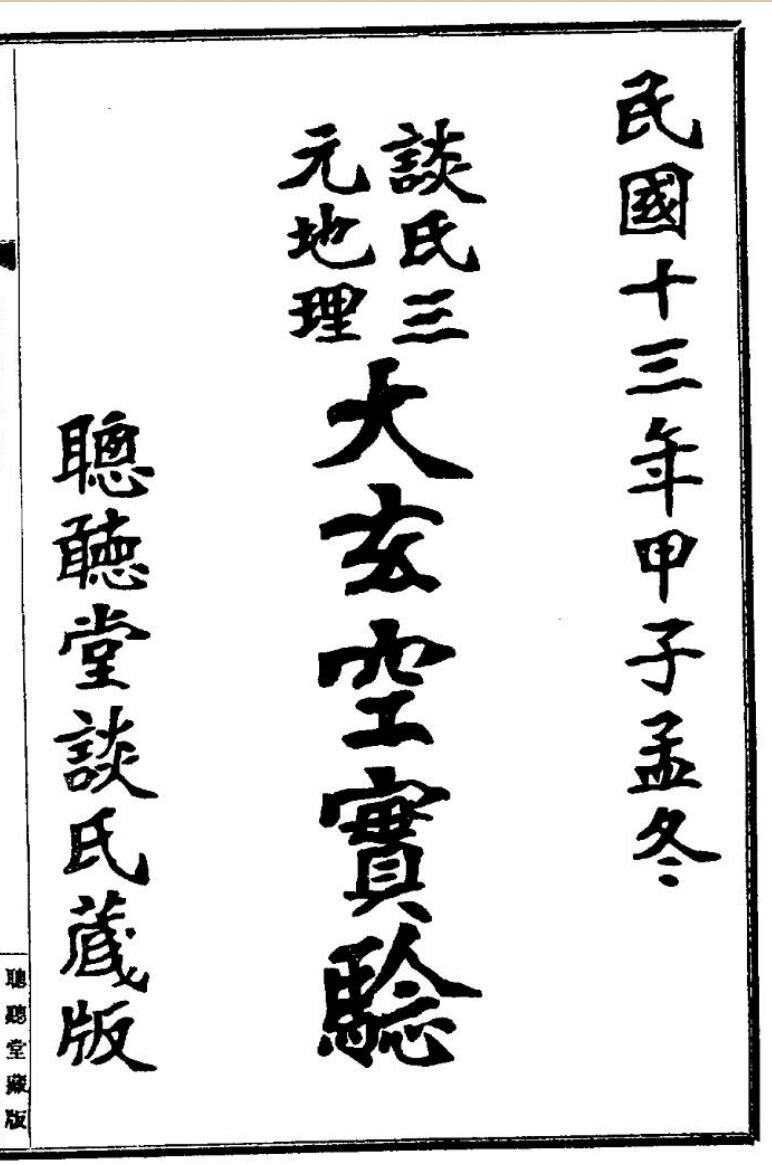 民國十三年甲子孟冬
談氏三
元地理
大玄空實驗
聰聽堂談氏藏版
聰聽堂藏版